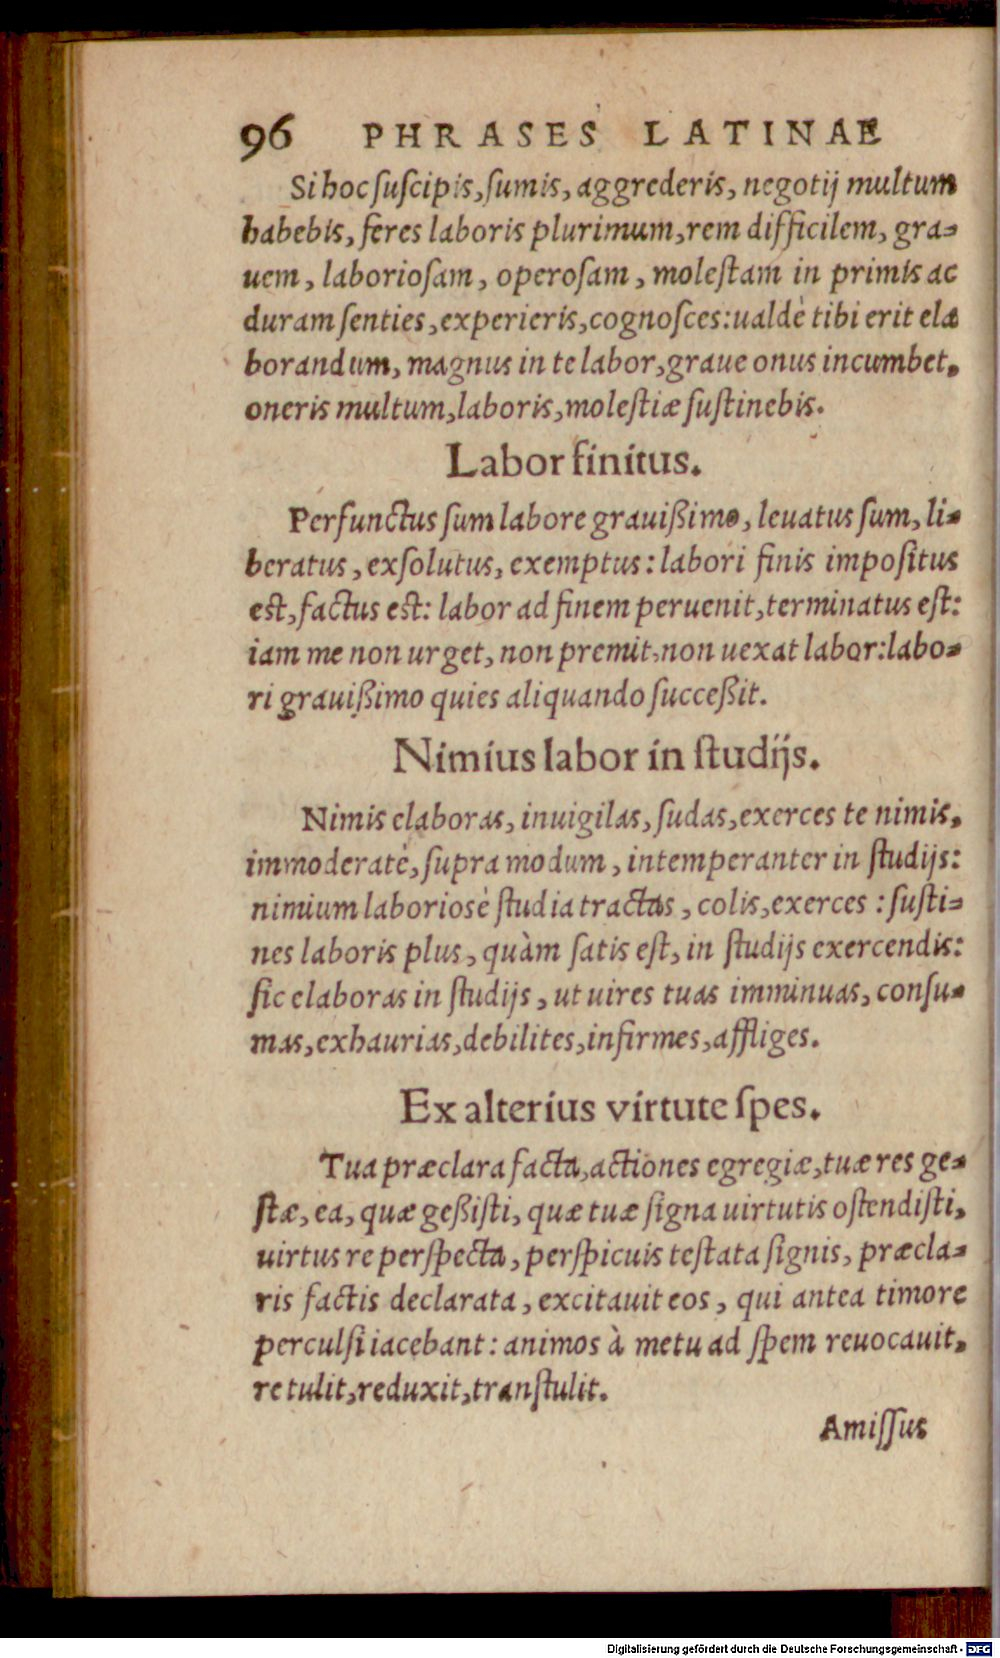 96 PHRASES LATINAE
Si hoc ſuſcipis, ſumis, aggrederis, negotij multum
habebis, feres laboris plurimum, rem difficilem, gra-
uem, laborioſam, operoſam, moleſtam in primis ac
duram ſenties, experieris, cognoſces: ualdè tibi erit ela
borandum, magnus in te labor, graue onus incumbet,
oneris multum, laboris, moleſtiæ ſuſtinebis.
Labor finitus.
Perfunctus ſum labore grauißimo, leuatus ſum, li-
beratus, exſolutus, exemptus: labori finis impoſitus
eſt, factus eſt: labor ad finem peruenit, terminatus eſt:
iam me non urget, non premit, non uexat labor: labo-
ri grauißimo quies aliquando ſucceßit.
Nimius labor in ſtudijs.
Nimis elaboras, inuigilas, ſudas, exerces te nimis,
immoderatè, ſupra modum, intemperanter in ſtudijs:
nimium laboriosè ſtudia tractas, colis, exerces: ſuſti-
nes laboris plus, quàm ſatis eſt, in ſtudijs exercendis:
ſic elaboras in ſtudijs, ut uires tuas imminuas, conſu-
mas, exhaurias, debilites, infirmes, affliges.
Ex alterius virtute ſpes.
Tua præclara facta, actiones egregiæ, tuæ res ge-
ſtæ, ea, quæ geßiſti, quæ tuæ ſigna uirtutis oſtendiſti,
uirtus re perſpecta, perſpicuis teſtata ſignis, præcla-
ris factis declarata, excitauit eos, qui antea timore
perculſi iacebant: animos à metu ad ſpem reuocauit,
retulit, reduxit, tranſtulit.
Amiſſus
Digitalisierung gefördert durch die Deutsche Forschungsgemeinschaft - DFG